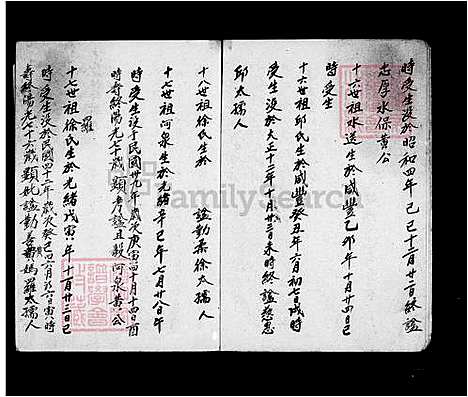 時受生沒於昭和四年己巳十二月廿二日終謚
志厚水保黃公
十六世祖水送生於咸豐乙卯年十月廿四日己
時受生
十六世祖邱氏生於咸豐癸丑年六月初七日戌時
受生沒於大正十三年十月廿三日未時終謚慈惠
邱太孺人
十八世祖徐氏生於 謚勤柔徐太孺人
十七世祖河泉生於光緒辛巳年七月廿八日午
時受生沒于民國卅九年歲次庚寅四月十四日酉
時壽終陽元七十歲顯考謚且毅河泉黃公
羅
十七世祖徐氏生於光緒戊寅年十一月廿三日巳
時受生沒於民國四十二年歲次癸巳四月初六日寅時
壽終陽元七十六歲顯妣謚勤善黃媽羅太孺人
FamilySearch